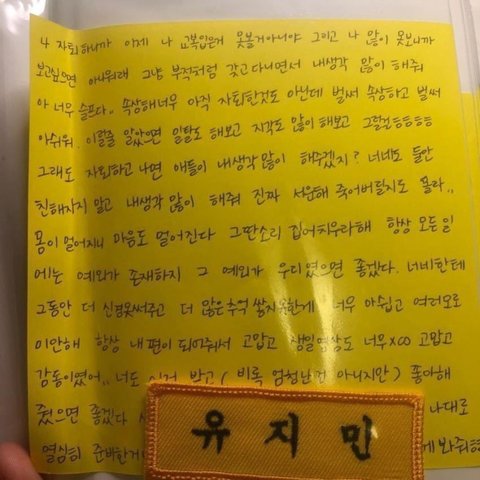 나 자퇴하니까 이제 나 교복입은거 못볼거아니야 그리고 나 많이 못보니까
보고싶으면 아니뭐래 그냥 부적처럼 갖고다니면서 내생각 많이 해줘
아 너무 슬프다. 속상해너무 아직 자퇴한것도 아닌데 벌써 속상하고 벌써
아쉬워. 이럴줄 알았으면 일탈도 해보고 지각도 많이 해보고 그럴걸ㅎㅎㅎㅎ
그래도 자퇴하고 나면 애들이 내생각 많이 해주겠지? 너네도 둘만
친해지지 말고 내생각 많이 해줘 진짜 서운해 죽어버릴지도 몰라,,
몸이 멀어지니 마음도 멀어진다 그딴소리 집어치우라해 항상 모든일
에는 예외가 존재하지 그 예외가 우리였으면 좋겠다. 너네한테
그동안 더 신경못써주고 더 많은추억 쌓지못한게 너무 아쉽고 여러모로
미안해 항상 내 편이 되어줘서 고맙고 생일영상도 너무xoo 고맙고
감동이였어,, 너도 이거 받고 (비록 엄청난건 아니지만) 좋아해
줬으면 좋겠다 나대로
열심히 준비한거 봐줘ㅎ
유지민